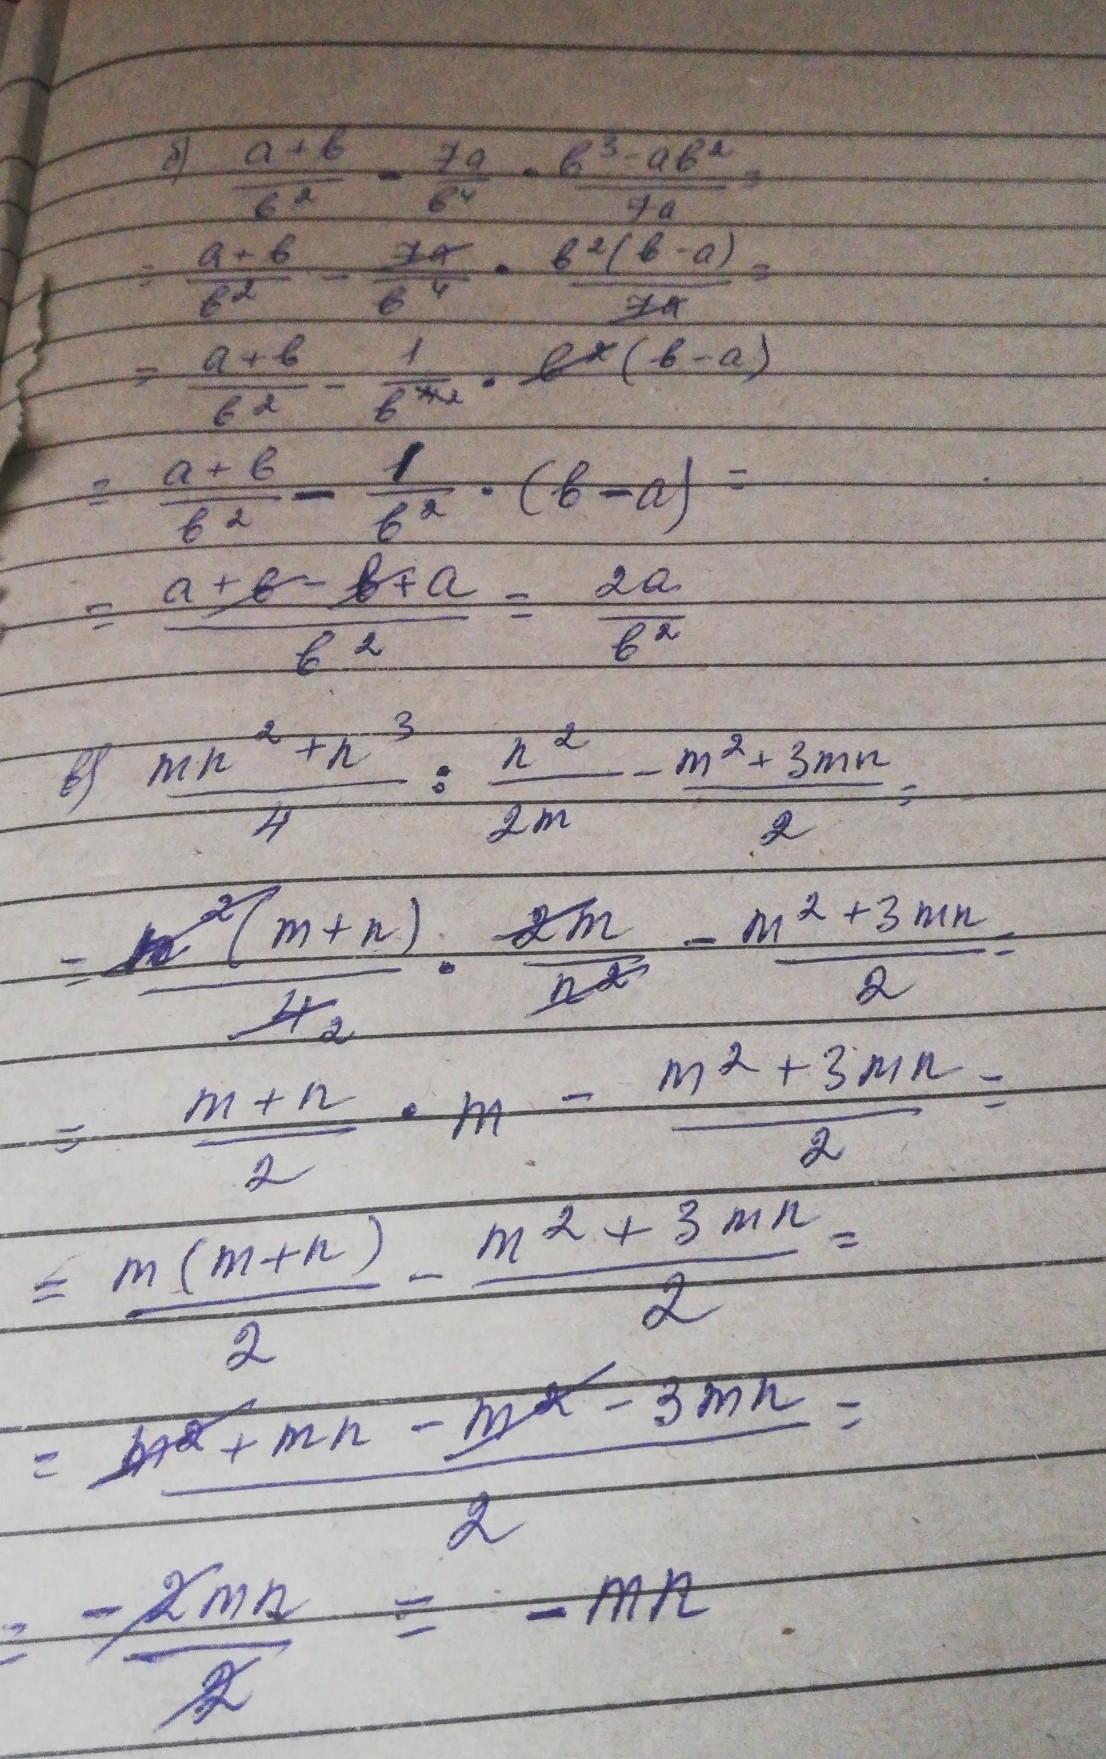 б) (a+b)/b² - 7a/b⁴ · (b³-ab²)/7a =
= (a+b)/b² - 7a/b⁴ · b²(b-a)/7a =
= (a+b)/b² - 1/b⁴² · b²(b-a)
= (a+b)/b² - 1/b² · (b-a) =
= (a+b-b+a)/b² = 2a/b²
в) (mn²+n³)/4 : n²/2m - (m²+3mn)/2 =
= n²(m+n)/4 2 · 2m/n² - (m²+3mn)/2 =
= (m+n)/2 · m - (m²+3mn)/2 =
= m(m+n)/2 - (m²+3mn)/2 =
= (m²+mn-m²-3mn)/2 =
= -2mn/2 = -mn